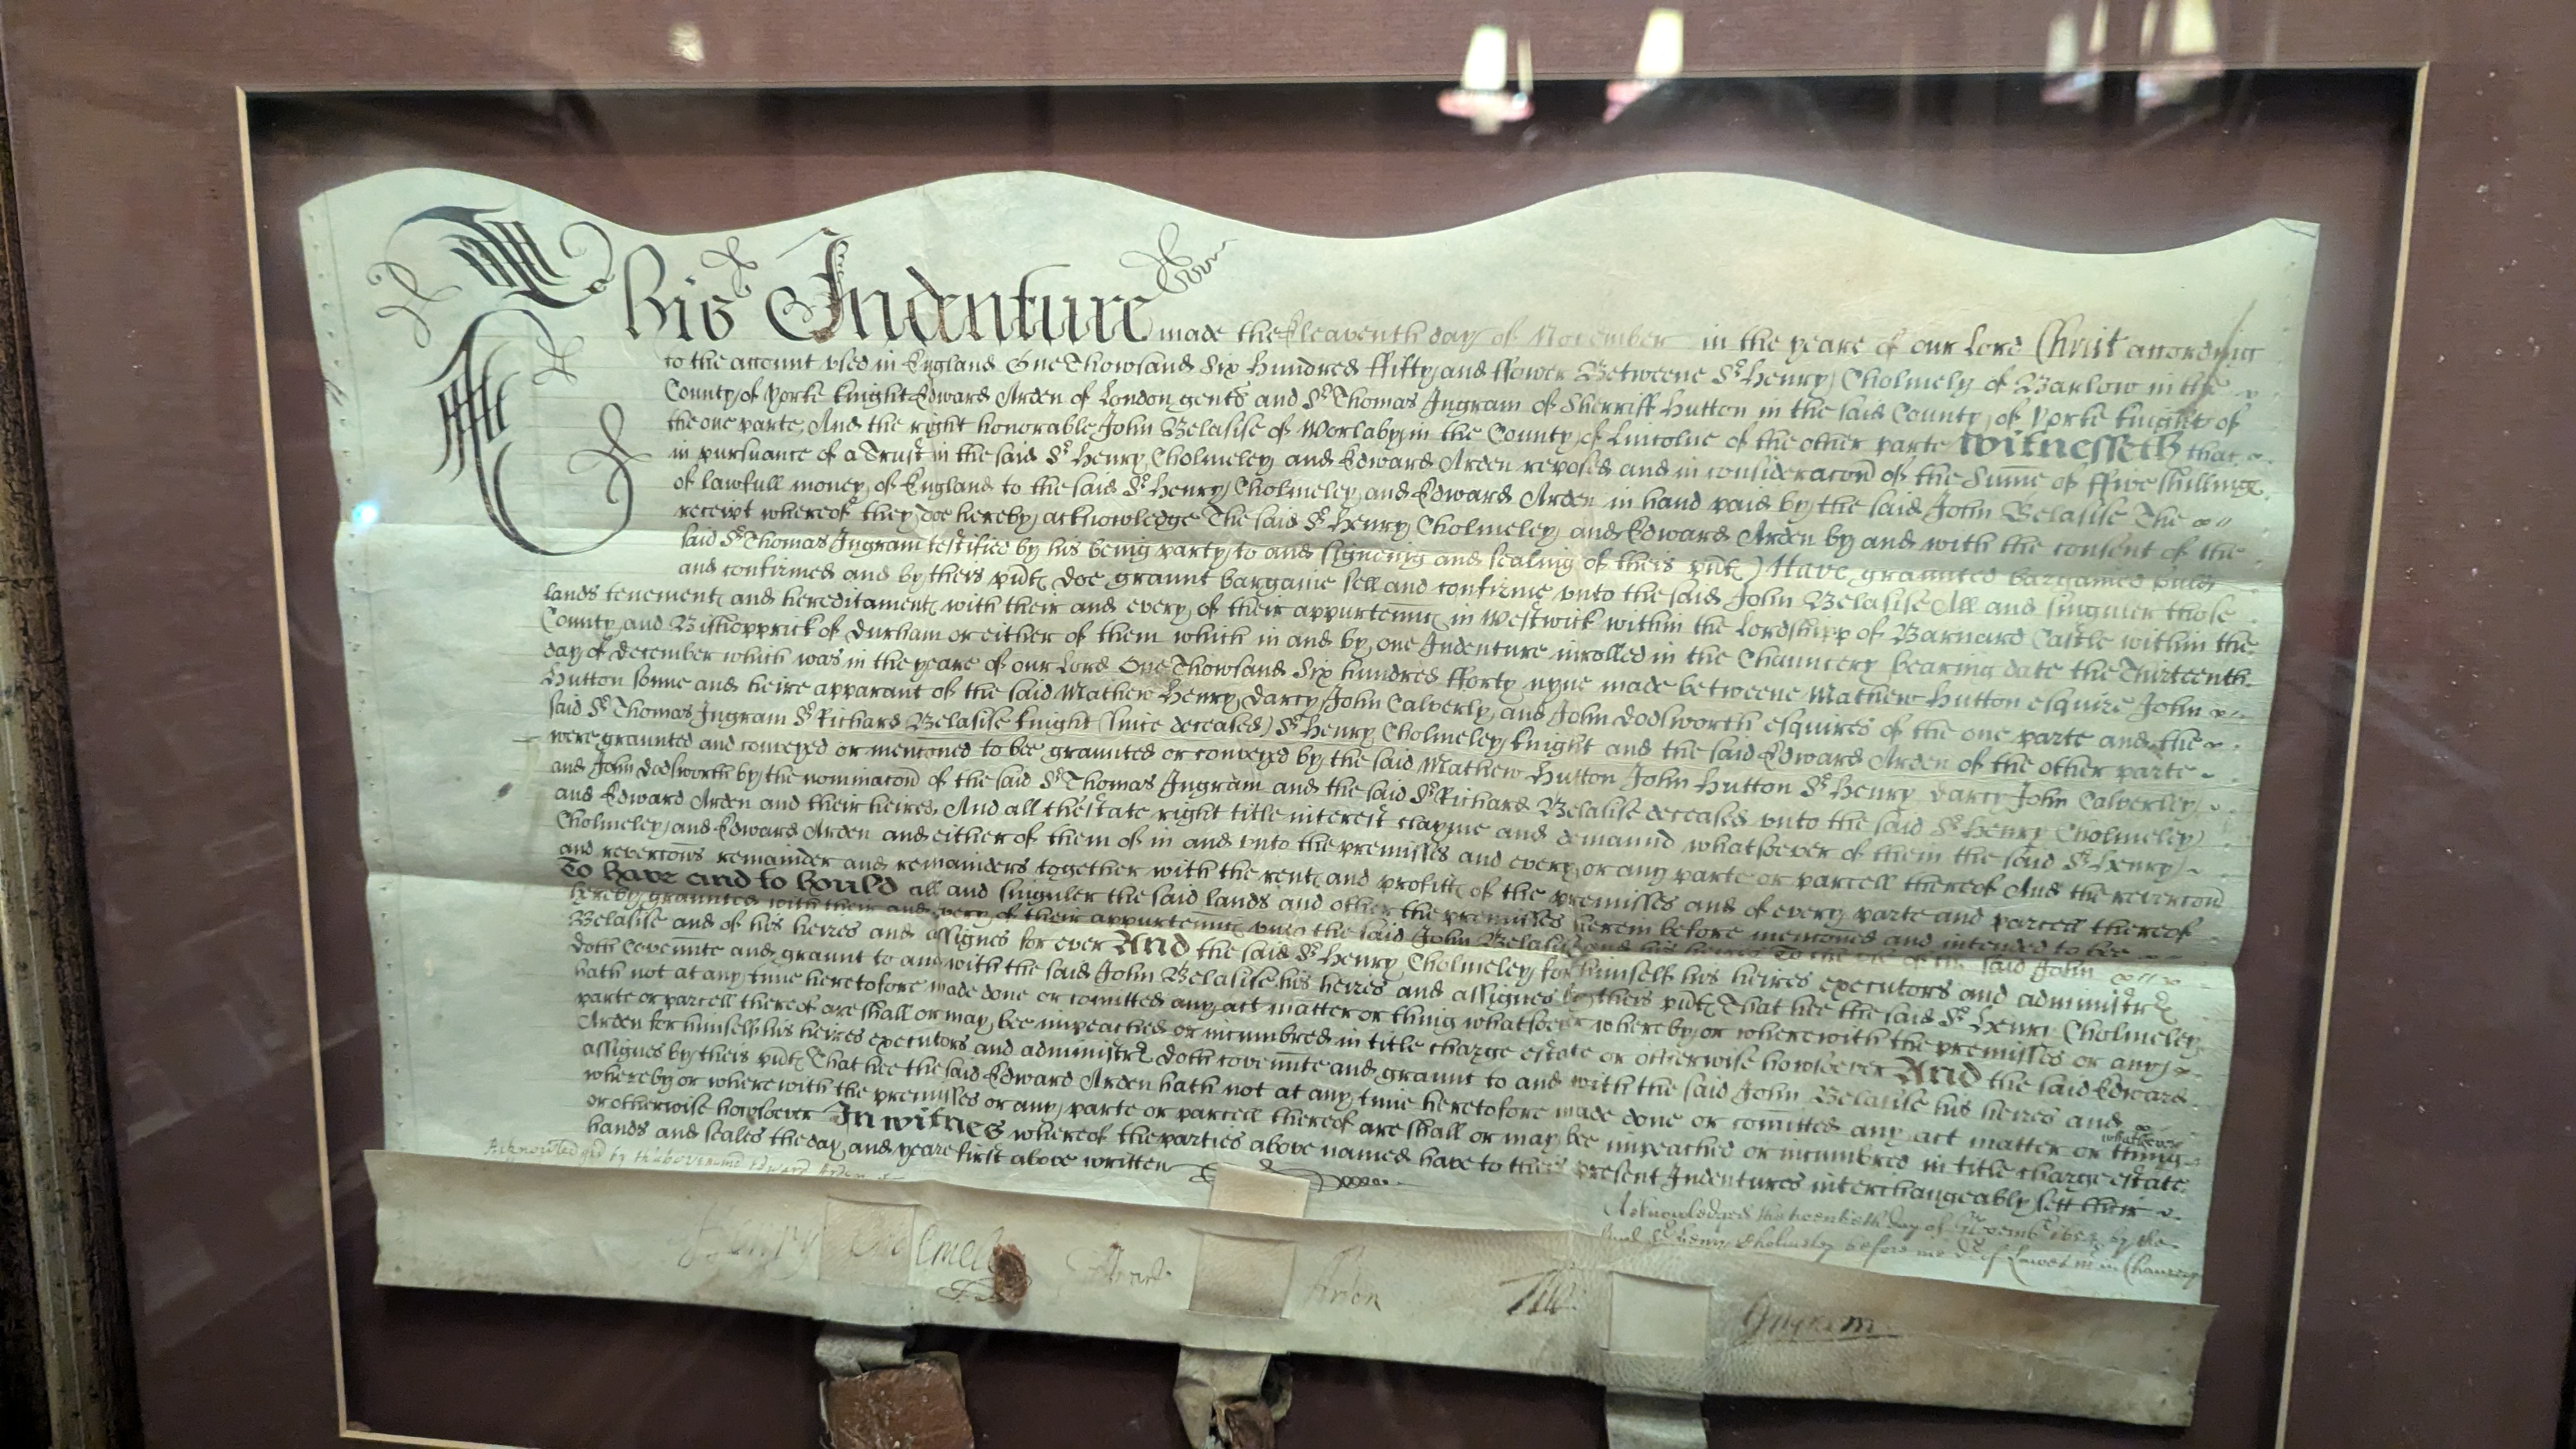 This Indenture made the Eleaventh day of November in the yeare of our Lord Christ according
to the accompt vsed in England One Thowsand Six Hundred ffifty and ffower Betweene Sr. Henry Cholmeley of Barlow in the
County of Yorke knight Edward Arden of London gent and Sr. Thomas Ingram of Sherriff Hutton in the said County of Yorke knight of
the one parte, And the right honorable John Belasise of Worlaby in the County of Lincolne of the other parte Witnesseth that
in pursuance of a Trust in the said Sr. Henry Cholmeley and Edward Arden reposed and in consideracon of the Summe of ffive shillings
of lawfull money of England to the said Sr. Henry Cholmeley and Edward Arden in hand paid by the said John Belasise The
receipt whereof they doe hereby acknowledge The said Sr. Henry Cholmeley and Edward Arden by and with the consent of the
said Sr. Thomas Ingram testified by his being party to and signeing and sealing of theis pnts) Have graunted bargained
and confirmed and by theis pnts doe graunt bargaine sell and confirme vnto the said John Belasise All and singuler those
lands tenements and hereditaments with their and every of their appurtennts in Westwick within the Lordshipp of Barnard Castle within the
County and Bishopprick of Durham or either of them which in and by one Indenture inrolled in the Chauncery bearing date the Thirteenth
day of December which was in the yeare of our Lord One Thowsand Six hundred fforty nyne made betweene Mathew Hutton esquire John
Hutton sonne and heire apparant of the said Mathew Henry Darcy John Calverly and John Dodsworth esquires of the one parte and the
said Sr. Thomas Ingram Sr. Richard Belasise knight (since deceased) Sr. Henry Cholmeley knight and the said Edward Arden of the other parte
were graunted and conveyed or menconed to bee graunted or conveyed by the said Mathew Hutton John Hutton Sr. Henry Darcy John Calverley
and John Dodsworth by the nominacon of the said Sr. Thomas Ingram and the said Sr. Richard Belasise deceased vnto the said Sr. Henry Cholmeley
and Edward Arden and their heires, And all the state right title interest clayme and demaund whatsoever of them the said Sr. Henry
Cholmeley and Edward Arden and either of them of in and vnto the premisses and every or any parte or parcell thereof And the revercon
and revercons remainder and remainders together with the rents and profitts of the premisses and of every parte and parcell thereof
To have and to hould all and singuler the said lands and other the premisses herein before mencioned and intended to bee
hereby graunted with their and every of their appurtennts vnto the said John Belasise and his heires To the vse of the said John
Belasise and of his heires and assignes for ever And the said Sr. Henry Cholmeley for himself his heires executors and administrs
doth Covennte and graunt to and with the said John Belasise his heires and assignes by theis pnts That hee the said Sr. Henry Cholmeley
hath not at any tyme heretofore made done or comitted any act matter or thing whatsoever whereby or wherewith the premisses or any
parte or parcell thereof are shall or may bee impeached or incumbred in title charge estate or otherwise howsoever And the said Edward
Arden for himself his heires executors and administrs doth covennte and graunt to and with the said John Belasise his heires and
assignes by theis pnts That hee the said Edward Arden hath not at any tyme heretofore made done or comitted any act matter or thing whatsoever
whereby or wherewith the premisses or any parte or parcell thereof are shall or may bee impeached or incumbred in title charge estate
or otherwise howsoever In witnes whereof the parties above named have to theis present Indentures interchangeably sett their
hands and seales the day and yeare first above written
Acknowledged by the above Edward Arden
Acknowledged the twentieth day of 1654 by the
said Sr Henry Cholmeley before me in Chancery
Henry Cholmeley Edward Arden Tho: Ingram